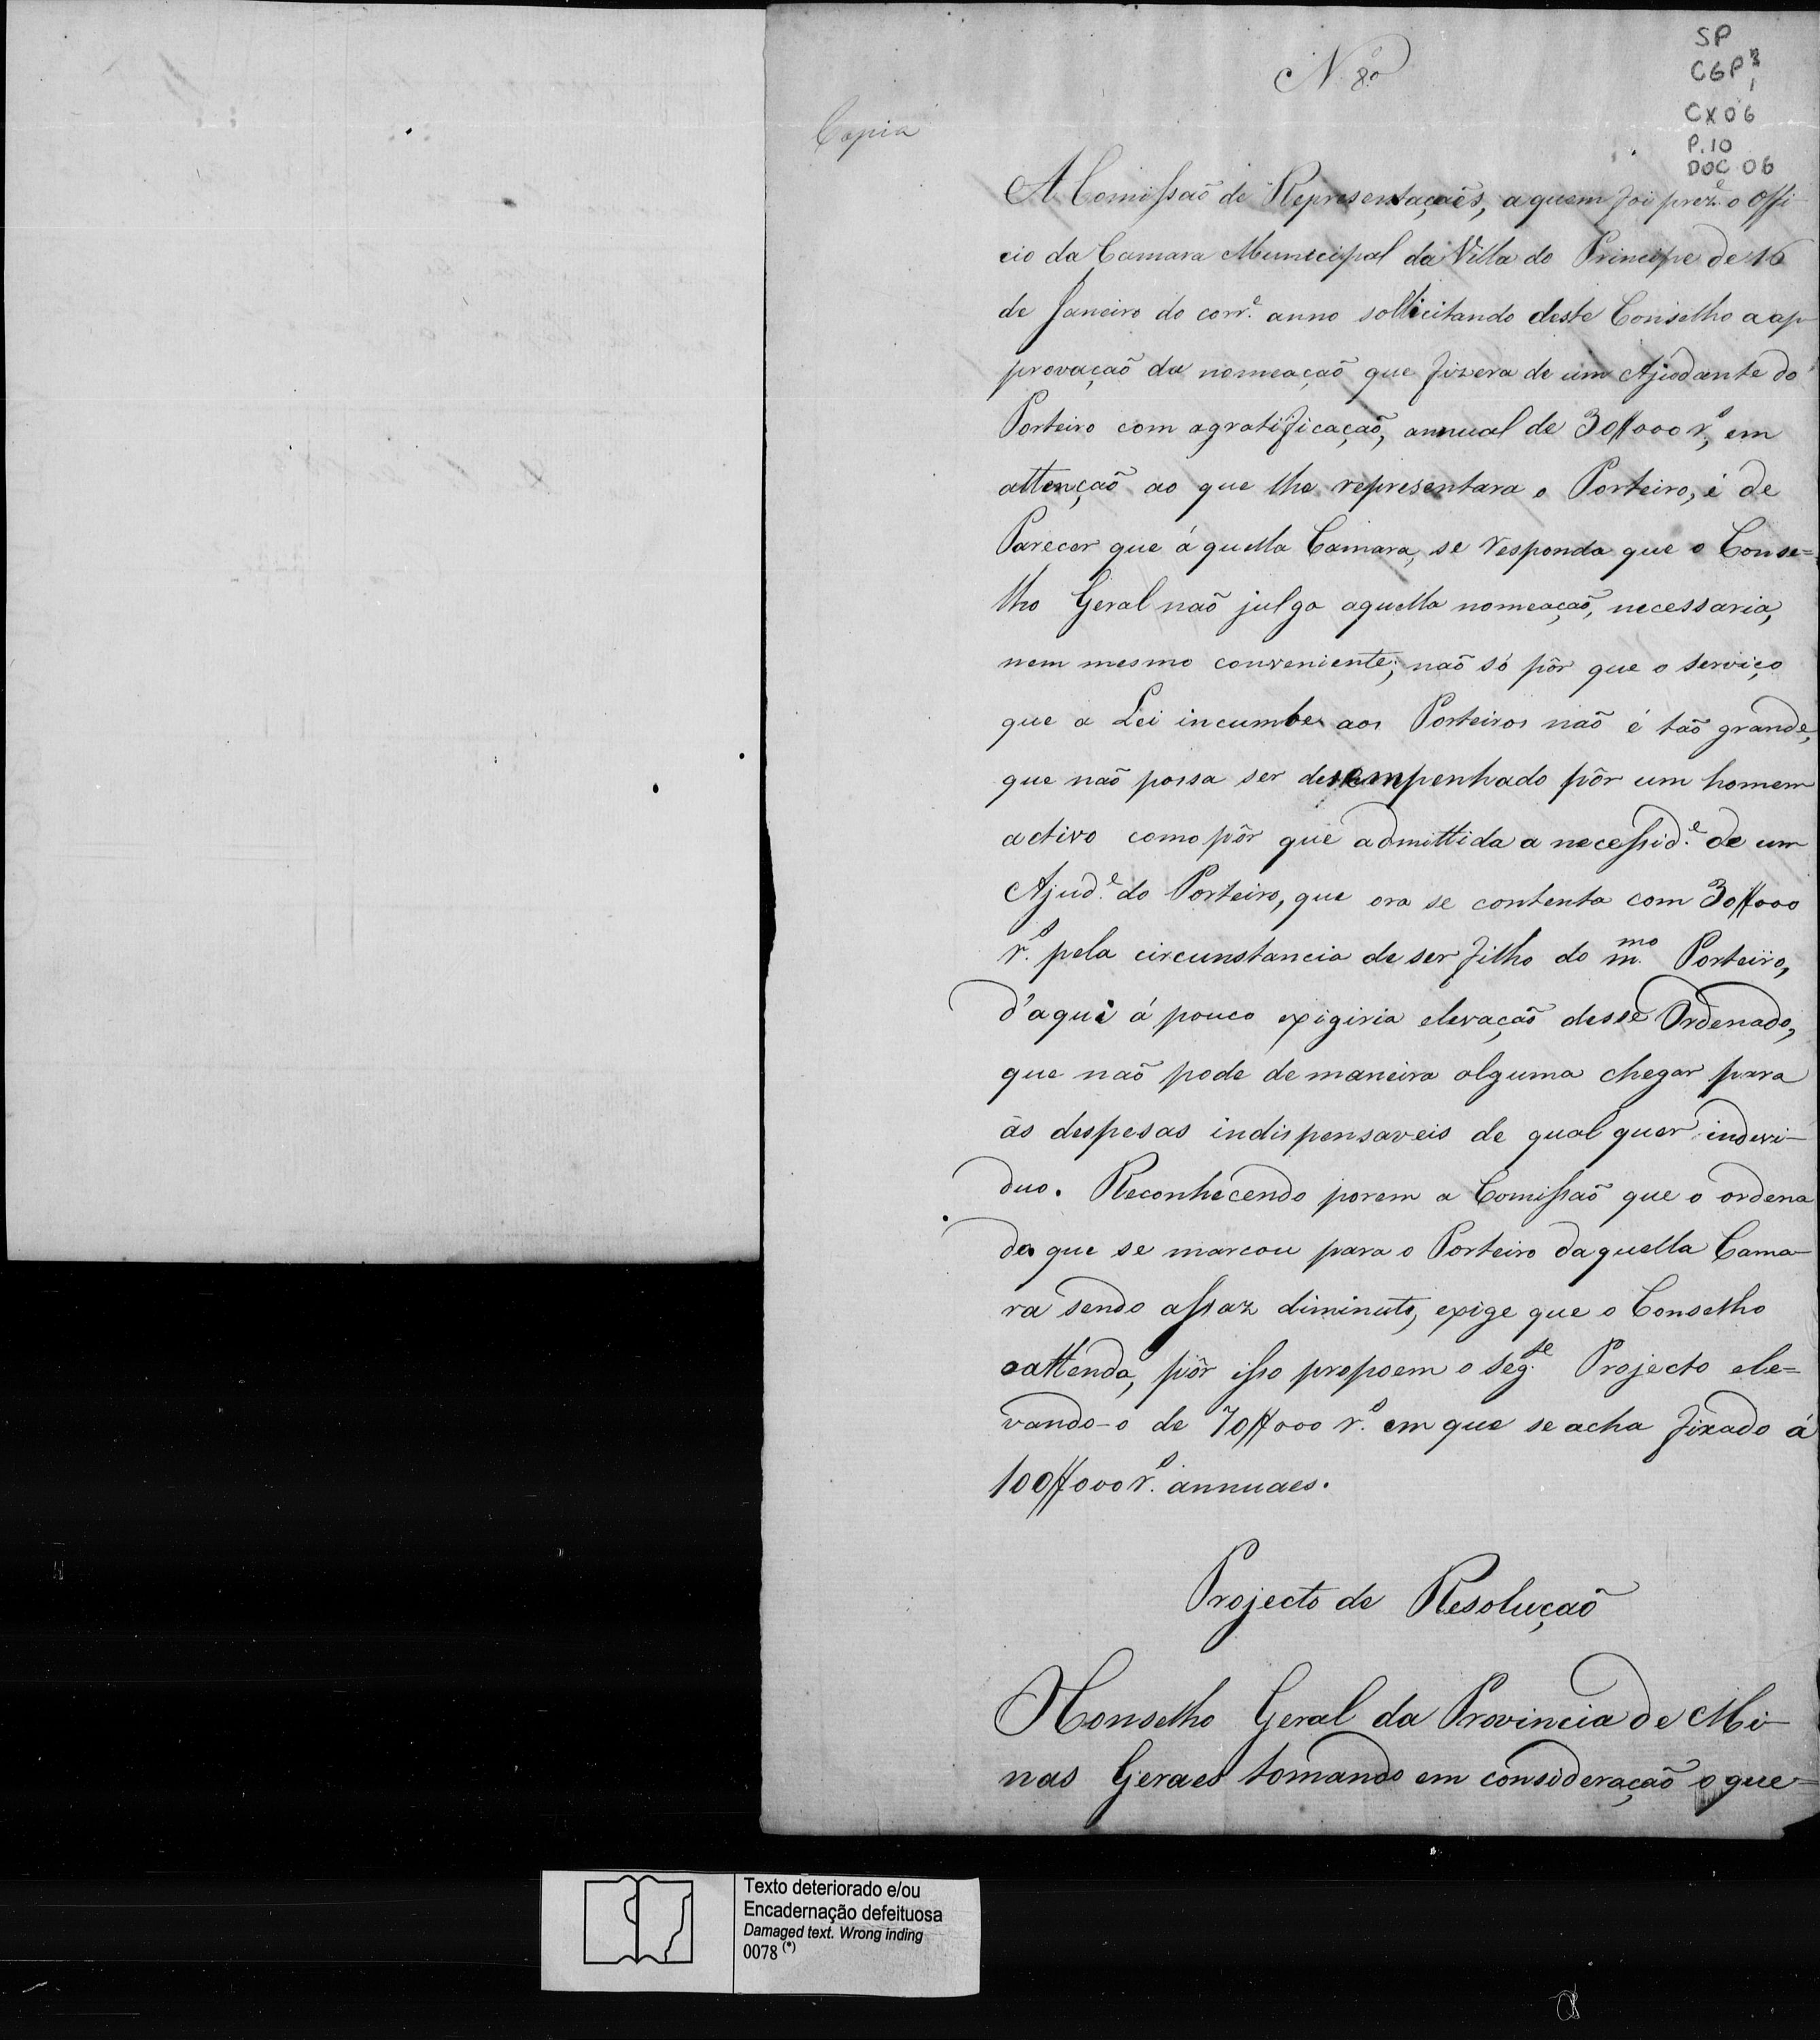 N.º 8.º
SP
CGP 3
1
CX 06
P. 10
DOC 06
Copia
A Comissaõ de Representaçoẽs, a quem foi prez.e o Offi-
cio da Camara Municipal da Villa do Principe de 16
de Janeiro do corr.e anno sollicitando deste Conselho a ap-
provaçaõ da nomeaçaõ que fizera de um Ajudante do
Porteiro com agratificaçaõ, annual de 30$000 r.s, em
attençaõ ao que lhe representara o Porteiro, é de
Parecer que áquella Camara, se responda que o Conse=
lho Geral naõ julga aquella nomeaçaõ, necessaria,
nem mesmo conveniente; naõ só pôr que o serviço
que a Lei incumbe aos Porteiros naõ é taõ grande,
que naõ possa ser desempenhado pôr um homem
activo como pôr que admittida a necessid.e de um
Ajud.e do Porteiro, que ora se contenta com 30$000
r.s pela circunstancia de ser filho do m.mo Porteiro,
d'aqui á pouco exigiria elevaçaõ desse Ordenado,
que naõ pode de maneira alguma chegar para
ás despesas indispensaveis de qual quer indevi-
duo. Reconhecendo porem a Comissaõ que o ordena
do que se marcou para o Porteiro daquella Cama-
ra sendo assaz diminuto, exige que o Conselho
oattenda, pôr isso propoem o seg.te Projecto ele=
vando-o de 70$000 r.s em que se acha fixado á
100$000 r.s annuaes.
Projecto de Resoluçaõ
OConselho Geral da Provincia de Mi-
nas Geraes tomando em consideraçaõ o que=
Texto deteriorado e/ou
Encadernação defeituosa
Damaged text. Wrong inding
0078 (*)